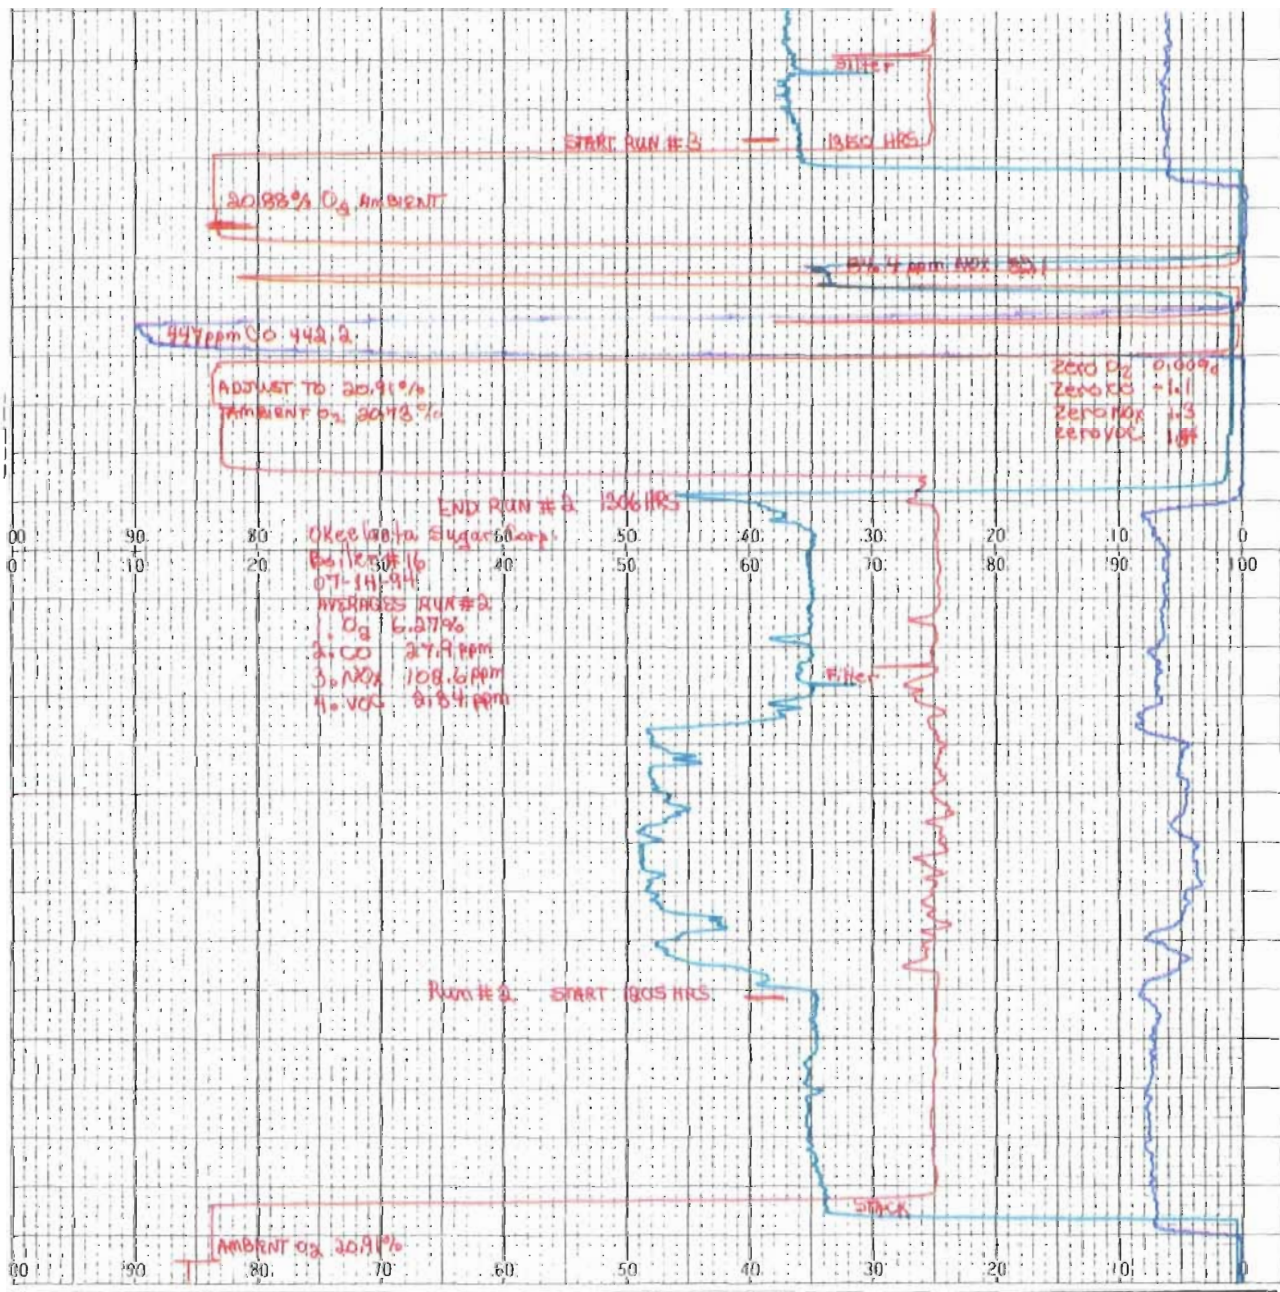 Filter
START RUN #3 1350 HRS
20.88% O2 AMBIENT
ppm NOx
447 ppm CO 442.2
Zero O2 0.00%
Zero CO -1.1
Zero NOx 1.3
Zero VOC
ADJUST TO 20.91%
AMBIENT O2 20.73%
END RUN #2 1306 HRS
00 90 80 70 60 50 40 30 20 10 0
0 10 20 30 40 50 60 70 80 90 100
Okeelanta Sugar Corp.
Boiler #16
07-14-94
AVERAGES RUN #2
1. O2 6.27%
2. CO 27.9 ppm
3. NOx 108.6 ppm
4. VOC 2.84 ppm
Filter
Run #2 START 1205 HRS
STACK
AMBIENT O2 20.91%
00 90 80 70 60 50 40 30 20 10 0